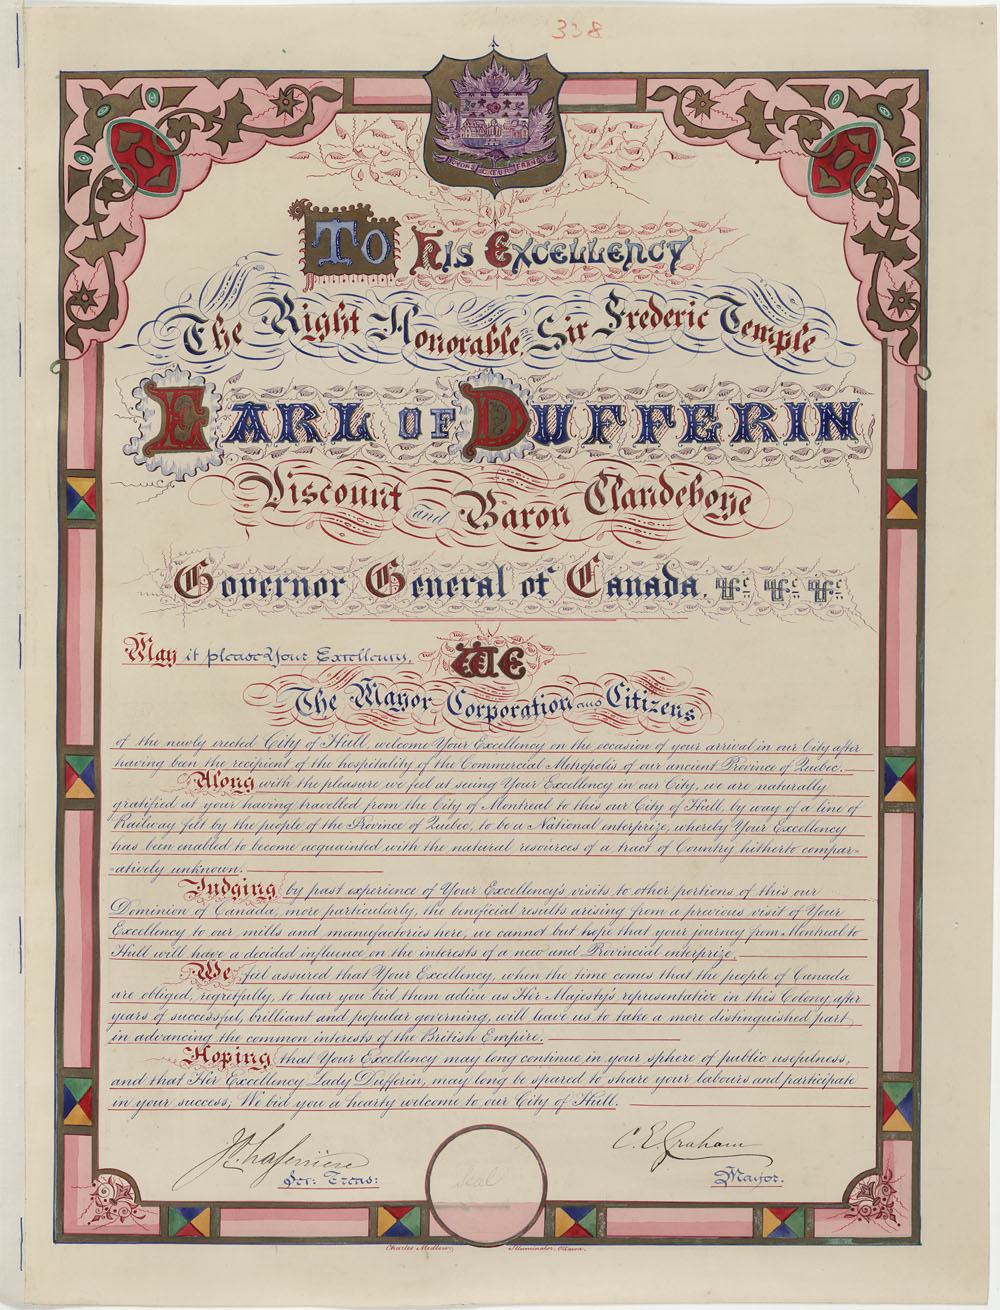 338
BONS CŒUR FRANC
To His Excellency
The Right Honorable, Sir Frederic Temple
Earl of Dufferin
Viscount and Baron Clandeboye
Governor General of Canada. &c &c &c
May it please Your Excellency, We
The Mayor, Corporation and Citizens
of the newly erected City of Hull, welcome Your Excellency on the occasion of your arrival in our City after
having been the recipient of the hospitality of the Commercial Metropolis of our ancient Province of Quebec.
Along with the pleasure we feel at seeing Your Excellency in our City, we are naturally
gratified at your having travelled from the City of Montreal to this our City of Hull, by way of a line of
Railway felt by the people of the Province of Quebec, to be a National enterprize, whereby Your Excellency
has been enabled to become acquainted with the natural resources of a tract of Country hitherto compar=
=atively unknown.
Judging by past experience of Your Excellency's visits to other portions of this our
Dominion of Canada, more particularly, the beneficial results arising from a previous visit of Your
Excellency to our mills and manufactories here, we cannot but hope that your journey from Montreal to
Hull will have a decided influence on the interests of a new and Provincial enterprize.
We feel assured that Your Excellency, when the time comes that the people of Canada
are obliged, regretfully, to hear you bid them adieu as Her Majesty's representative in this Colony, after
years of successful, brilliant and popular governing, will leave us to take a more distinguished part
in advancing the common interests of the British Empire.
Hoping that Your Excellency may long continue in your sphere of public usefulness,
and that Her Excellency Lady Dufferin, may long be spared to share your labours and participate
in your success; We bid you a hearty welcome to our City of Hull.
C. E. Graham
Sec: Treas:
Mayor.
Seal
Charles Medlow, Illuminator, Ottawa.